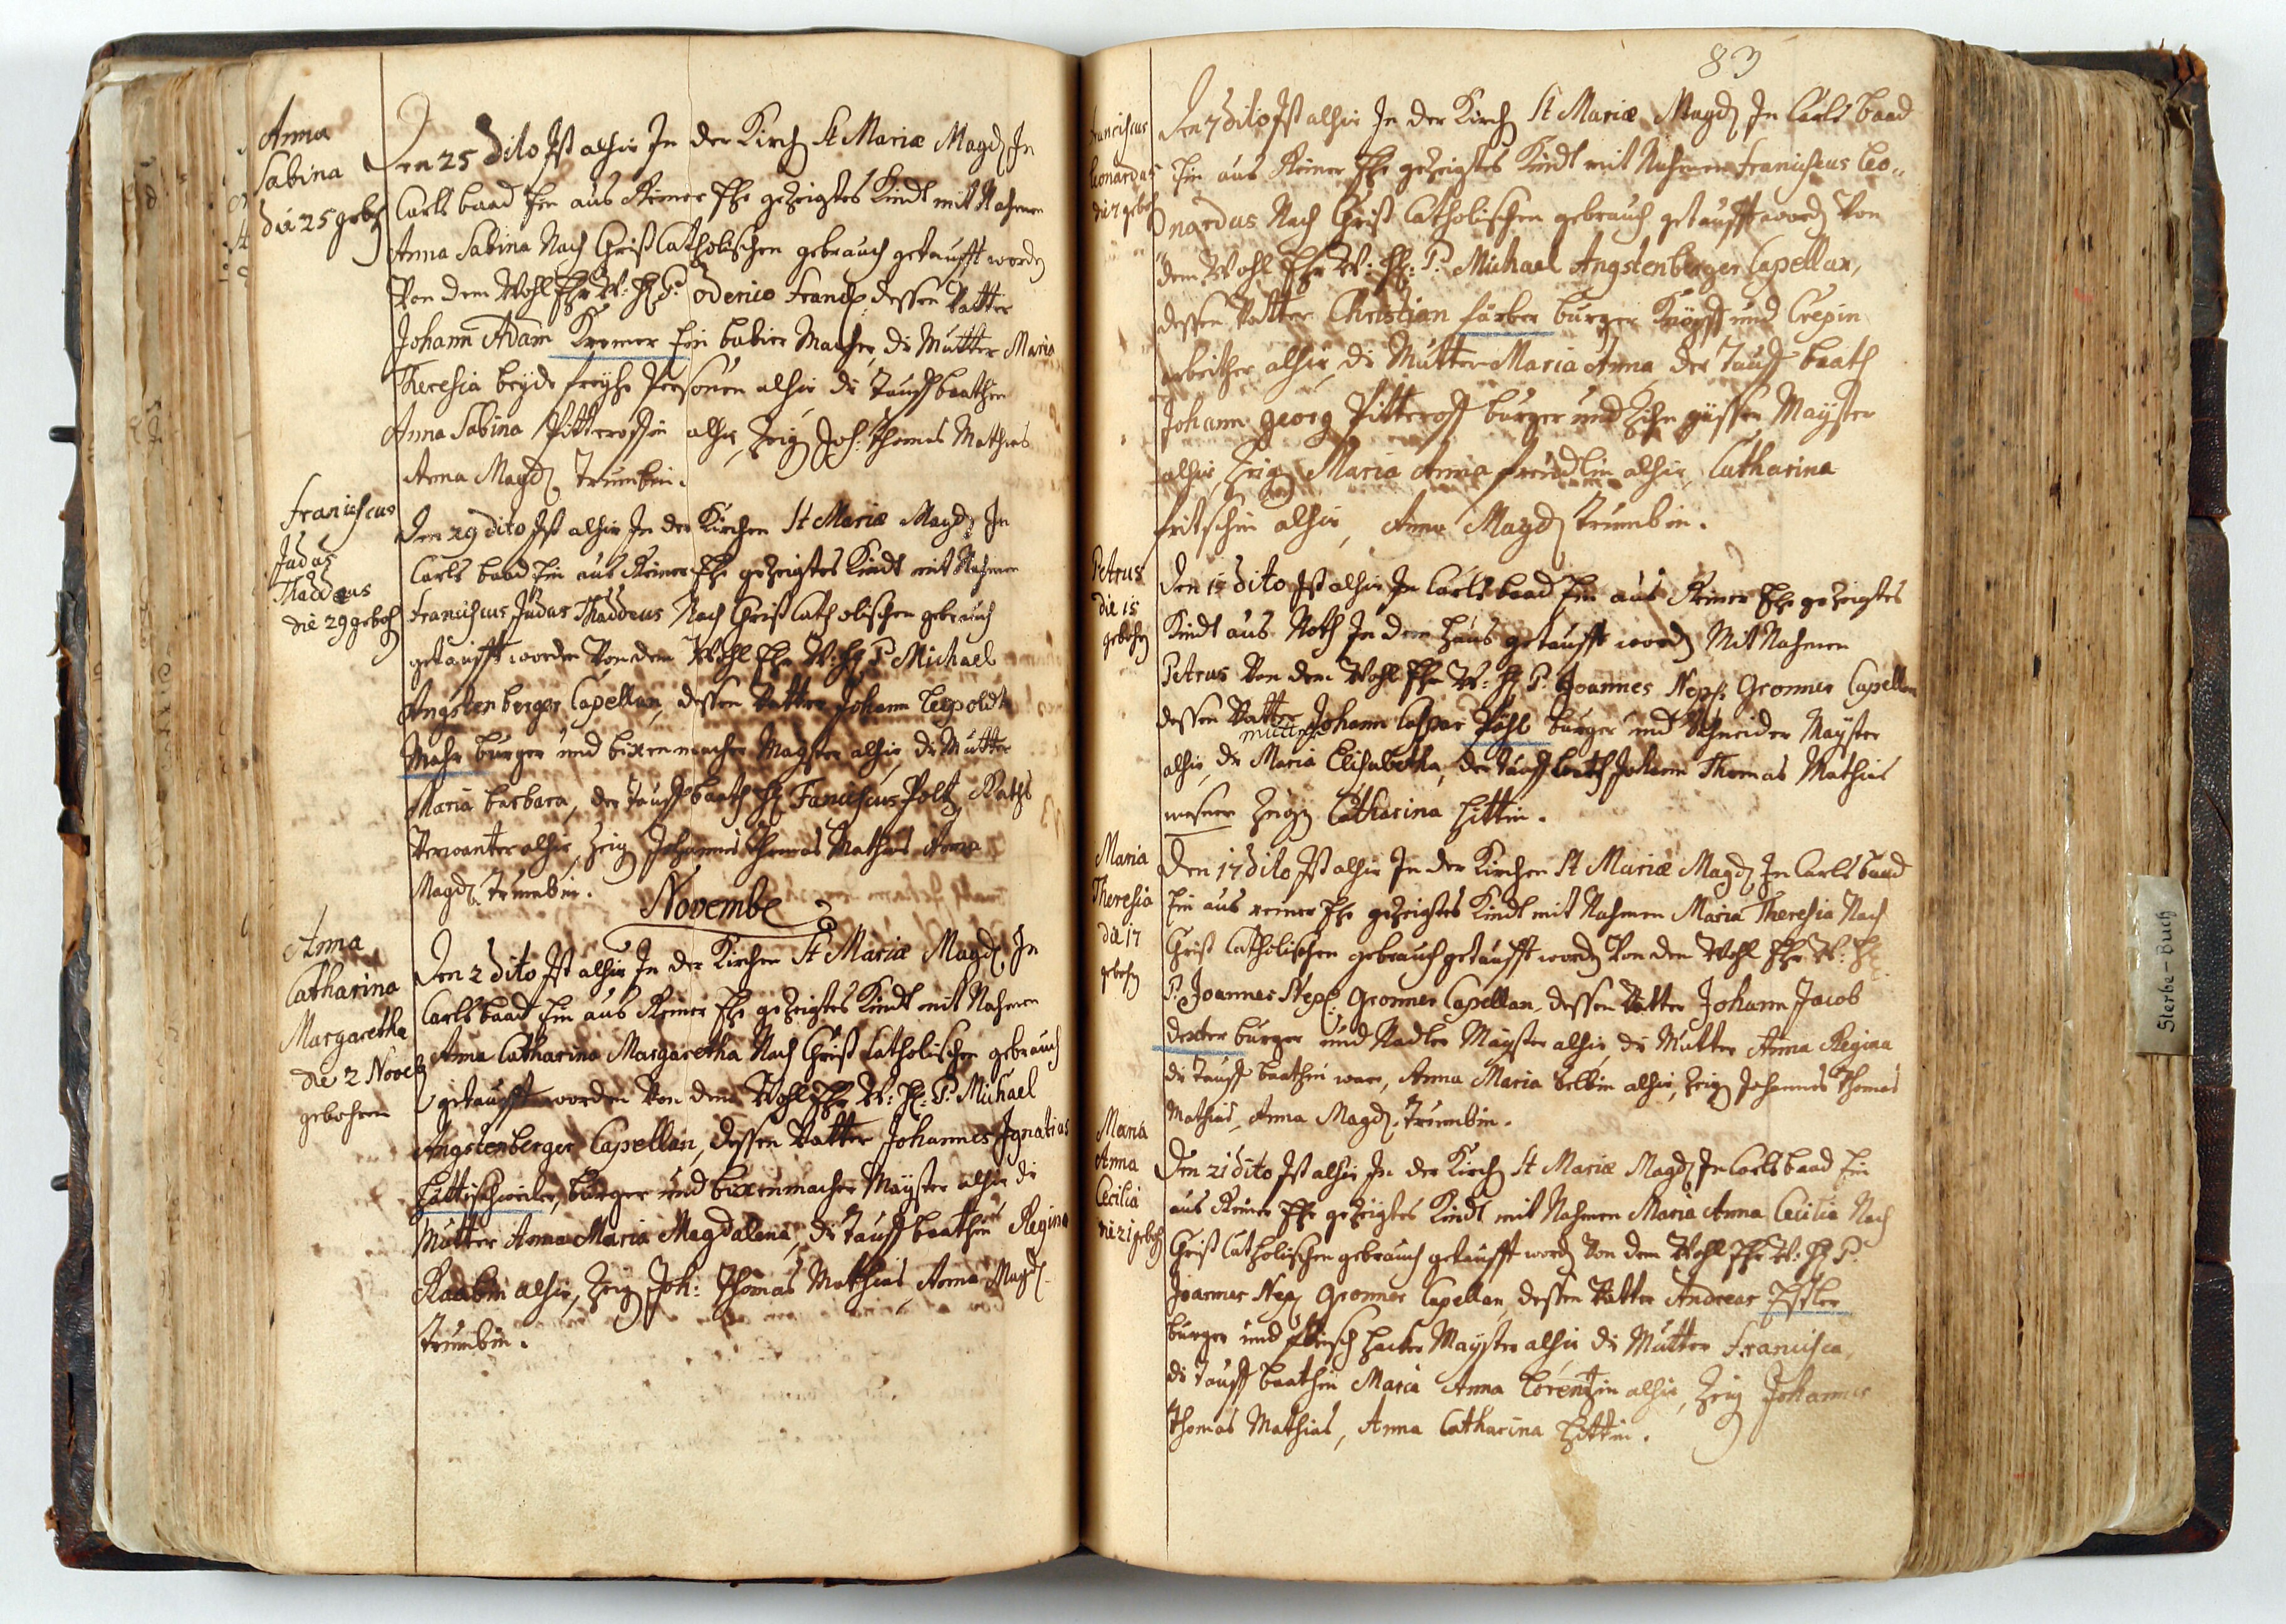 Anna
Sabina
die 25 geboh
Den 25 dito Ist alhir In der Kirch St Mariæ Magd In
Carls baad Ein aus Reiner Ehe gezeigtes Kindt mit Nahmen
Anna Sabina Nach Christ Catholischen gebrauch getaufft worden
Von dem Wohl Ehr W: H: P: oderico Francz dessen Vatter
Johann Adam Kremer Ein babier Macher, die Mutter Maria
Theresia beyde freyhe Personen alhir die Tauff baathin
Anna Sabina Pitteroffin alhir, Zeig Joh: Thomas Mathias
Anna Magd. Trumbin.
Francischcus
Judas
Thaddeus
die 29 geboh
Den 29 dito Ist alhir In der Kirchen St Mariæ Magd: In
Carls baad Ein aus Reiner Ehe gezeigtes Kindt mit Nahmen
Francischcus Judas Thaddeus Nach Christ Catholischen gebrauch
getaufft worden Von dem Wohl Ehr W: H: P Michael
Angstenberger Capellan, dessen Vatter Johann Leopoldt
Mahr burger und bixenmacher Mayster alhir, die Mutter
Maria barbara, der Tauff baath H: Fancischcus Poltz Raths
Verwanter alhir, Zeig Johannes Thomas Mathias Anna
Magd. Trumbin.
Novembe
Anna
Catharina
Margaretha
die 2 Nove
gebohren
Den 2 dito Ist alhir In der Kirchen St Mariæ Magd. In
Carls baad Ein aus Reiner Ehe gezeigtes Kindt mit Nahmen
Anna Catharina Margaretha Nach Christ Catholischen gebrauch
getaufft worden Von dem Wohl Ehr W: H: P: Michael
Angstenberger Capellan, dessen Vatter Johannes Ignatius
burger und bixenmacher Mayster alhir die
Mutter Anna Maria Magdalena, die Tauff baathin Regina
Raabin alhir, Zeig Joh: Thomas Mathias, Anna Magd.
Trumbin.
83
Francischcus
Leonardus
die 7 geboh
Den 7 dito Ist alhir In der Kirch St Mariæ Magd. In Carls baad
Ein aus Reiner Ehe gezeigtes Kindt mit Nahmen Francischcus Leo„
nardus Nach Christ Catholischen gebrauch getaufft word Von
dem Wohl Ehr W: H: P: Michael Angstenberger Capellan,
dessen Vatter Christian färber burger Knöpff und Crepin
arbeither alhir, die Mutter Maria Anna, der Tauff baath
Johann georg Pitteroff burger und Zihn güsser Mayster
alhir, Zeig Maria Anna freidlin alhir, Catharina
fritschin alhir, Anna Magd Trumbin.
Petrus
die 15
gebohr
Den 15 dito Ist alhir In Carls baad Ein aus Reiner Ehe gezeigtes
Kindt aus Noth In dem Haus getaufft word Mit Nahmen
Petrus Von dem Wohl Ehr W: H: P: Joannes Nep: Gronner Capellan
dessen Vatter Johann Caspar Pöhl burger und Schneider Mayster
mutter
alhir, die Maria Elisabetha, der Tauff baath Johann Thomas Mathias
mesner Zeig Catharina Hittin.
Maria
Theresia
die 17
gebohr
Den 17 dito Ist alhir In der Kirchen St Mariæ Magd. In Carls baad
Ein aus reiner Ehe gezeigtes Kindt mit Nahmen Maria Theresia Nach
Christ Catholischen gebrauch getaufft word Von dem Wohl Ehr W: H:
P: Joannes Nep: Gronner Capellan, dessen Vatter Johann Jacob
dexter burger und Nadler Mayster alhir, die Mutter Anna Regina
die Tauff baathin war, Anna Maria belbin alhir, Zeig Johannes Thomas
Mathias, Anna Magd. Trumbin.
Maria
Anna
Cecilia
die 21 geboh
Den 21 dito Ist alhir In der Kirch St Mariæ Magd In Carls baad Ein
aus Reiner Ehe gezeigtes Kindt mit Nahmen Maria Anna Cecilia Nach
Christ Catholischen gebrauch getaufft word Von dem Wohl Ehr W: H: P:
Joannes Nep Gronner Capellan, dessen Vatter Andreas
burger und fleisch Hacker Mayster alhir die Mutter Francisca,
die Tauff baathin Maria Anna Lorentzin alhir, Zeig Johannes
Thomas Mathias, Anna Catharina Hittin.
Sterbe-Buch